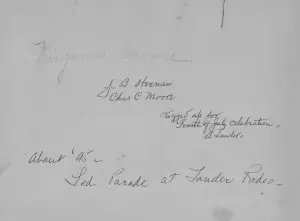 J. B. Hooman
Chas C Moore
Rigged up for
Fourth of July Celebration
at Lander.
About '95 -
Led Parade at Lander Rodeo -